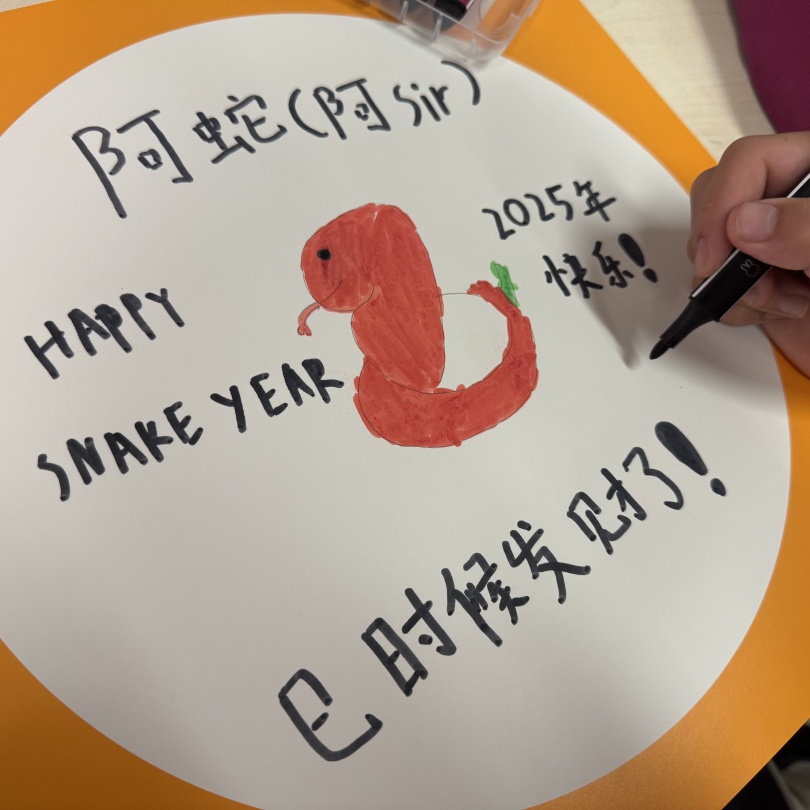 阿蛇(阿sir)
2025年
快乐!
HAPPY
SNAKE YEAR
巳时候发财了!